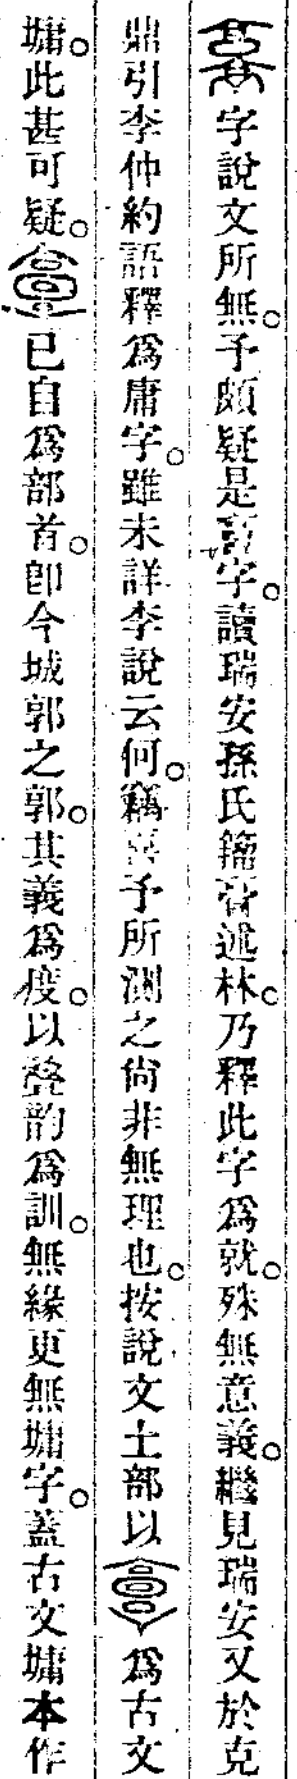 字說文所無。予頗疑是亯字。讀瑞安孫氏籀膏述林。乃釋此字爲就。殊無意義。繼見瑞安又於克
鼎引李仲約語釋爲庸字。雖未詳李說云何。竊喜予所測之尙非無理也。按說文土部以爲古文
墉。此甚可疑。已自爲部首。卽今城郭之郭。其義爲度。以聲韵爲訓。無緣更無墉字。蓋古文墉本作